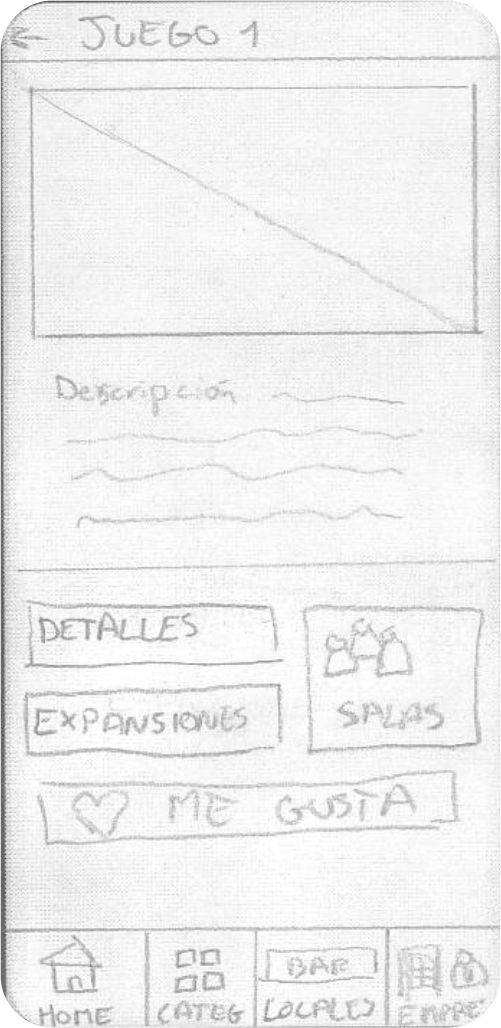 ← JUEGO 1
Descripción
DETALLES
EXPANSIONES
SALAS
ME GUSTA
BAR
HOME CATEG LOCALES EMPRE